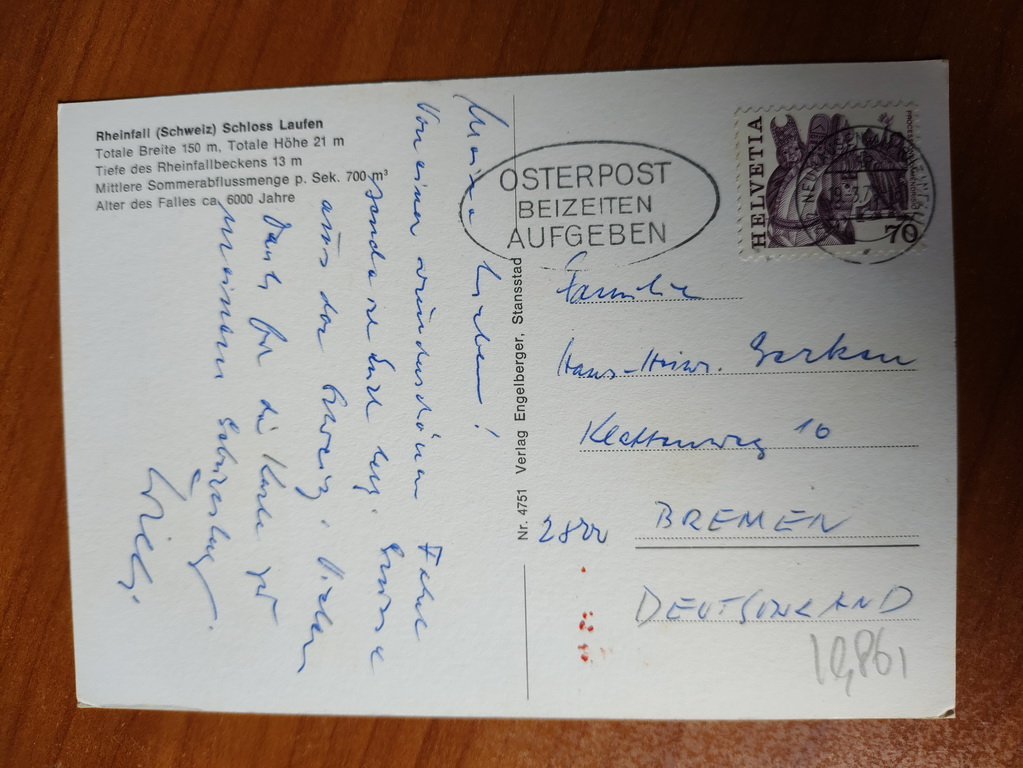 Rheinfall (Schweiz) Schloss Laufen
Totale Breite 150 m, Totale Höhe 21 m
Tiefe des Rheinfallbeckens 13 m
Mittlere Sommerabflussmenge p. Sek. 700 m³
Alter des Falles ca. 6000 Jahre
Meine Lieben!
Von einer wunderschönen
sende ich Euch Grüsse
aus der Schweiz. Vielen
Dank für die Karte zu
meinem Geburtstag.
Willy.
Nr. 4751 Verlag Engelberger, Stansstad
OSTERPOST
BEIZEITEN
AUFGEBEN
HELVETIA
70
Familie
Hans-Heinr. Gerken
Klattenweg 16
2800 BREMEN
DEUTSCHLAND